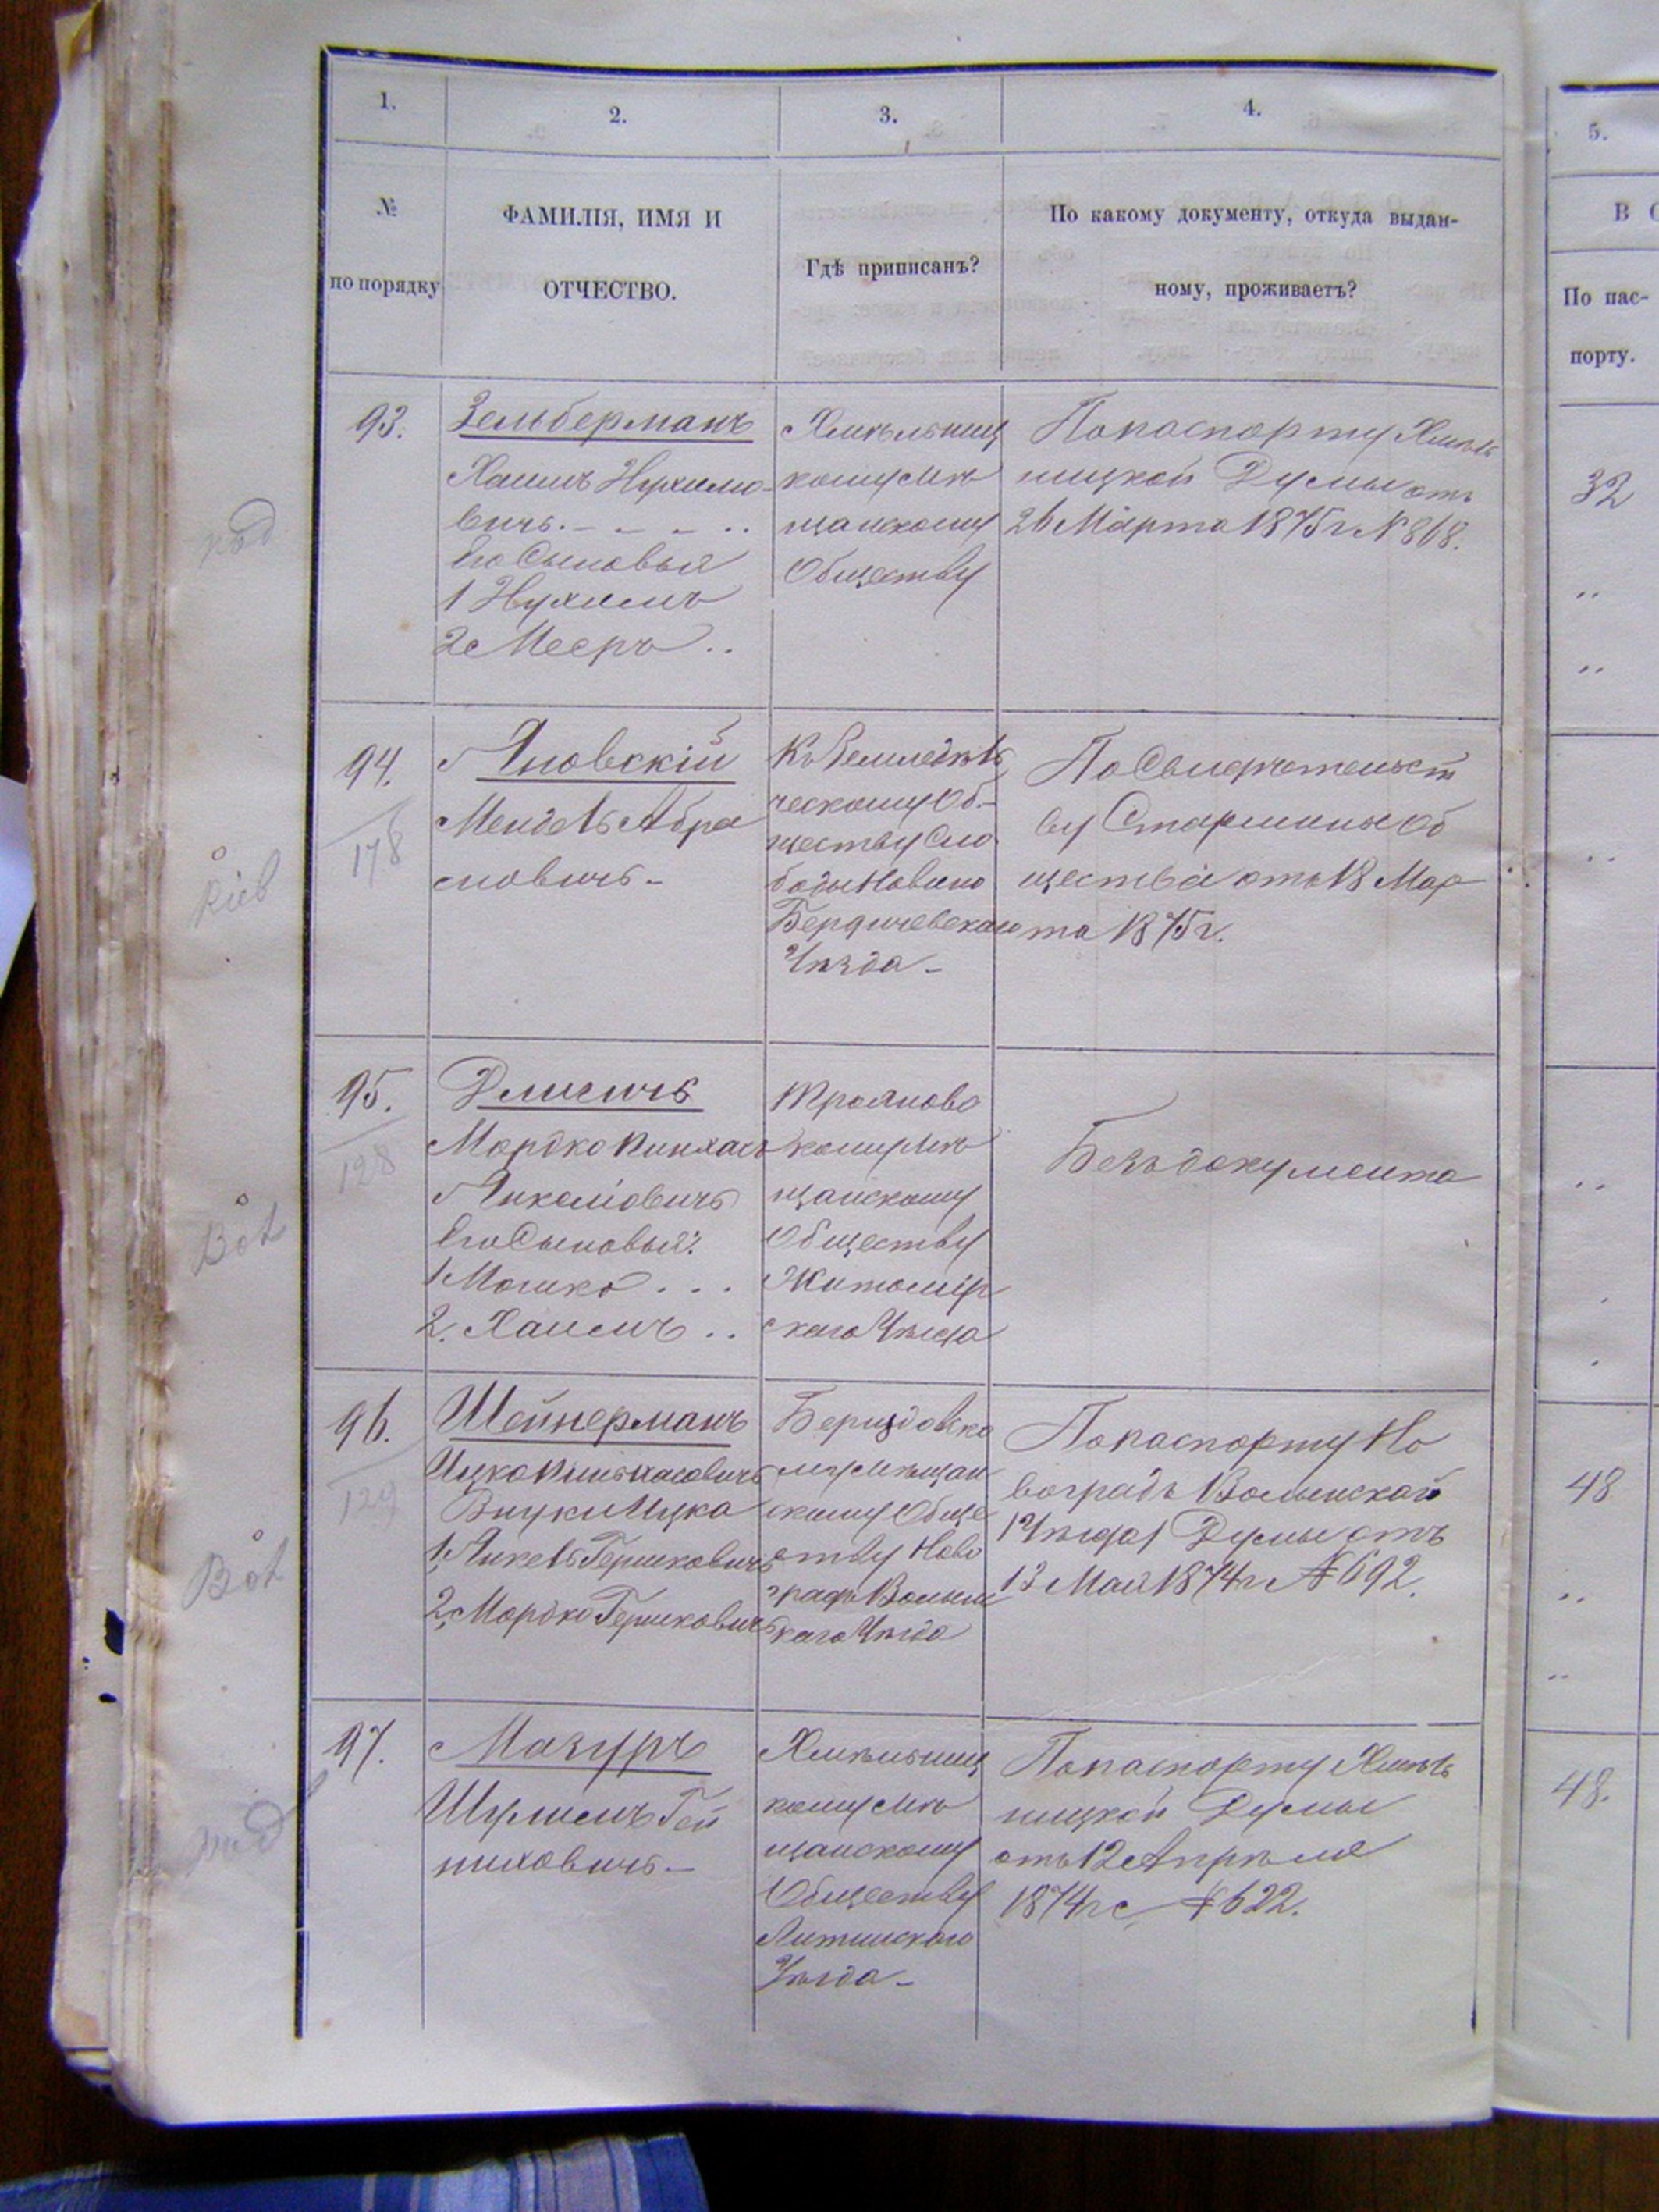 1.
2.
3.
4.
5.
№
по порядку
ФАМИЛІЯ, ИМЯ И
ОТЧЕСТВО.
Гдѣ приписанъ?
По какому документу, откуда выдан-
ному, проживаетъ?
В
По пас-
порту.
93.
Зельберманъ
Хаимъ Нухимо-
вичъ. - - - ..
Его Сыновья
1 Нухимъ
2 Мееръ ..
Хмѣльниц
кому мѣ
щанскому
Обществу
По паспорту Хмѣль
ницкой Думы отъ
26 Марта 1875 г № 868.
32
94.
178
Яновскій
Мендель Абра
мовичъ-
Къ Земледѣль
ческому Об-
ществу Сло
боды
Бердичевскаго
Уѣзда-
По Свидѣтельст
ву Старшины Об
щества отъ 18 Мар
та 1875 г.
95.
128
Длигичъ
Мордко Пинхасъ
Янкелiовичъ
Его Сыновья:
1 Мошко . . .
2. Хаимъ ..
Трояновс
кому мѣ
щанскому
Обществу
Житомір
скаго Уѣзда
Безъ документа
96.
129
Шейнерманъ
Ицко Пиньхасовичъ
Внуки Ицка
1, Янкель Гершковичъ
2, Мордко Гершковичъ
Берездовско
му мѣщан
скому Обще
ству Ново
градъ Волынс
каго Уѣзда
По паспорту Но
воградъ Волынской
/Уѣзда/ Думы отъ
13 Мая 1874 г № 692.
48
97.
Мазуръ
Шулимъ Гей
ниховичъ-
Хмѣльниц
кому мѣ
щанскому
Обществу
Литинскаго
Уѣзда-
По паспорту Хмѣль
ницкой Думы
отъ 12 Апрѣля
1874 г № 622.
48.